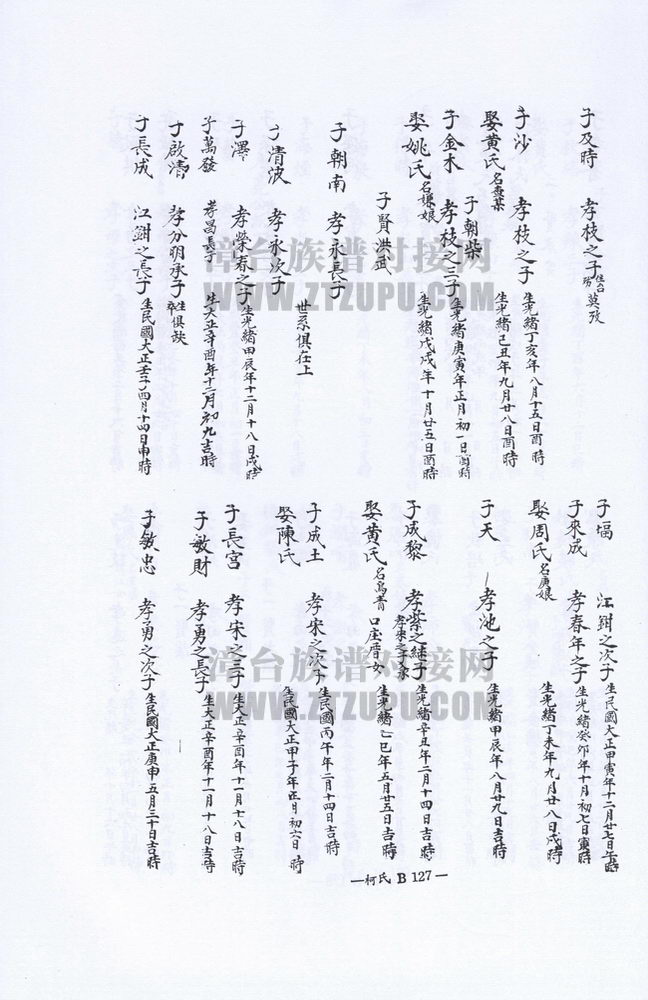 子及時　孝枝之子 住台灣 莫攷
子沙　孝枝之子 生光緒丁亥年八月十五日酉時
娶黃氏 生光緒己丑年九月廿八日酉時
子朝柴
子金木　孝枝之三子 生光緒庚寅年正月初一日酉時
娶姚氏 名嫌娘 生光緒戊戌年十月廿五日酉時
子賢洪武
子朝南　孝永長子
世系俱在上
子清波　孝永次子
子澤　孝榮春之子 生光緒甲辰年十二月十八日戌時
子萬發　孝昌長子 生大正辛酉年十二月初九吉時
子啟清　孝分明承子 生卒俱缺
子長成　江鉗之長子 生民國大正壬子四月十四日申時
子福　江鉗之次子 生民國大正甲寅年十二月廿七日午時
子來成　孝春年之子 生光緒癸卯年十月初七日寅時
娶周氏 名庚娘 生光緒丁未年九月廿八日戌時
子天　孝池之子 生光緒甲辰年八月廿九日吉時
子成黎　孝柴之継子 生光緒辛丑年二月十四日吉時
娶黃氏 生光緒乙巳年五月廿五日吉時
子成土　孝宋之次子 生民國丙午年二月十四日吉時
娶陳氏 生民國大正甲子年正月初六日 時
子長宮　孝宋之三子 生大正辛酉年十一月十八日吉時
子敏財　孝勇之長子 生大正辛酉年十一月十八日吉時
子敏忠　孝勇之次子 生民國大正庚申五月三十日吉時
—柯氏 B 127—
漳台族谱对接网
WWW.ZTZUPU.COM
漳台族谱对接网
WWW.ZTZUPU.COM